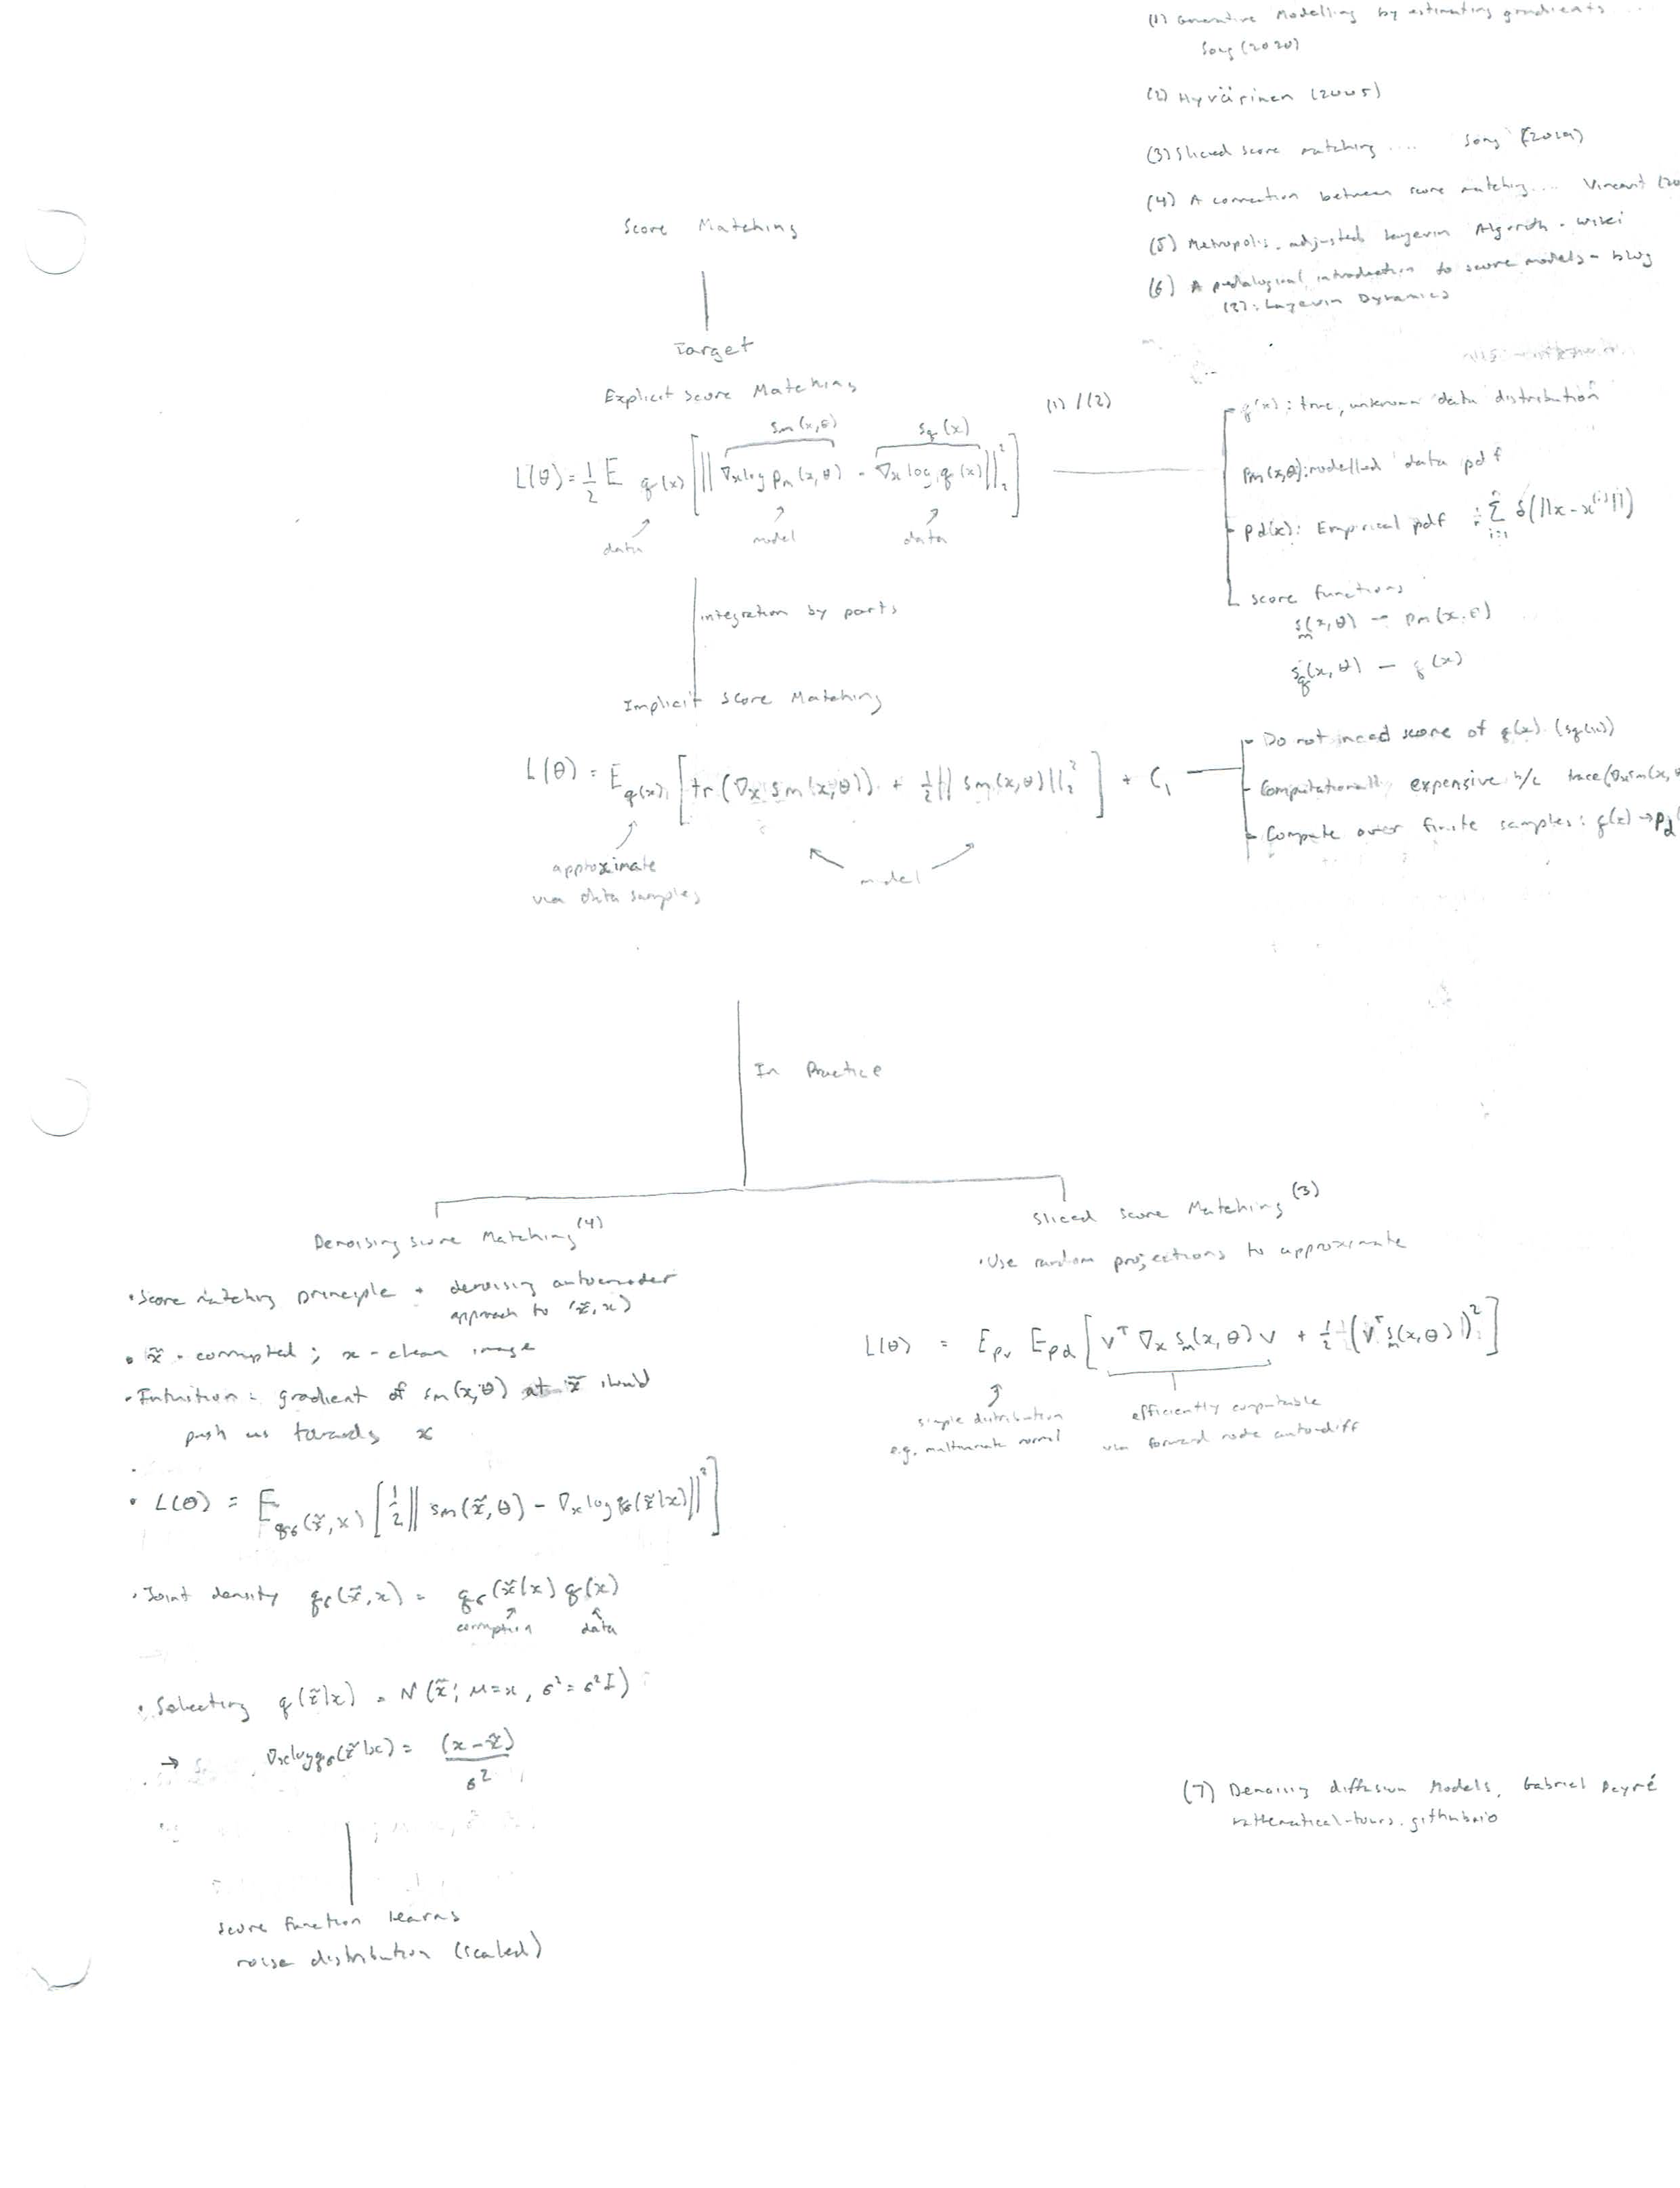 (1) Generative Modelling by estimating gradients ....
Song (2020)
(2) Hyvärinen (2005)
(3) Sliced score matching .... Song (2019)
(4) A connection between score matching.... Vincent (20
(5) Metropolis-adjusted Langevin Algorith - wiki
(6) A pedalogical introduction to score models - blog
(2): Langevin Dynamics
Score Matching
Target
Explicit Score Matching
(1) / (2)
L(θ) = 1/2 E q(x) [ || ∇x log pm(x,θ) - ∇x log q(x) ||₂² ]
sm(x,θ) sq(x)
data model data
q(x): true, unknown data distribution
pm(x,θ): modelled data pdf
pd(x): Empirical pdf 1/n Σ i=1 n δ(||x - x⁽ⁱ⁾||)
score functions
sm(x,θ) - pm(x,θ)
sq(x,θ) - q(x)
integration by parts
Implicit Score Matching
L(θ) = E q(x) [ tr(∇x sm(x,θ)) + 1/2 || sm(x,θ) ||₂² ] + C₁
approximate
via data samples
model
Do not need score of q(x) (sq(x))
Computationall expensive b/c trace(∇x sm(x,θ
Compute over finite samples: q(x) → pd(
In Practice
Denoising Score Matching (4)
• Score matching principle + denoising autoencoder
approach to (x̃, x)
• x̃ - corrupted ; x - clean image
• Intuition: gradient of sm(x,θ) at x̃ should
push us towards x
• L(θ) = E qσ(x̃,x) [ 1/2 || sm(x̃,θ) - ∇x log qσ(x̃|x) ||² ]
• Joint density qσ(x̃,x) = qσ(x̃|x) q(x)
corruption data
• Selecting q(x̃|x) = N(x̃; μ=x, σ²=σ²I)
→ ∇x log qσ(x̃|x) = (x - x̃) / σ²
Score function learns
noise distribution (scaled)
Sliced Score Matching (3)
• Use random projections to approximate
L(θ) = E pv E pd [ vᵀ ∇x sm(x,θ) v + 1/2 (vᵀ sm(x,θ))² ]
simple distribution
e.g. multivariate normal
efficiently computable
via forward mode auto-diff
(7) Denoising diffusion Models, Gabriel Peyré
mathematical-tours.github.io